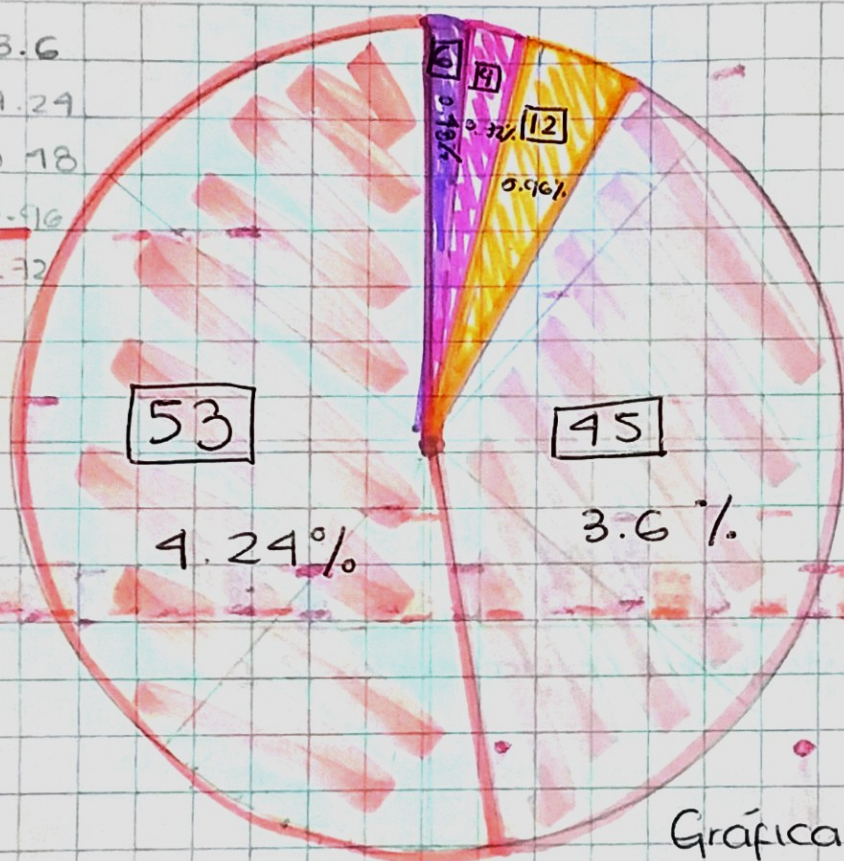 3.6
4.24
.48
.96
.72
6
0.48%
9
0.72%
12
0.96%
53
4.24%
45
3.6 %
Gráfica